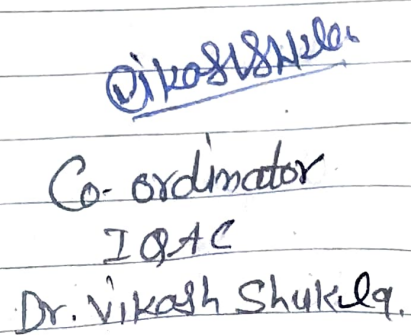 Vikash Shukla
Co-ordinator
IQAC
Dr. Vikash Shukla.